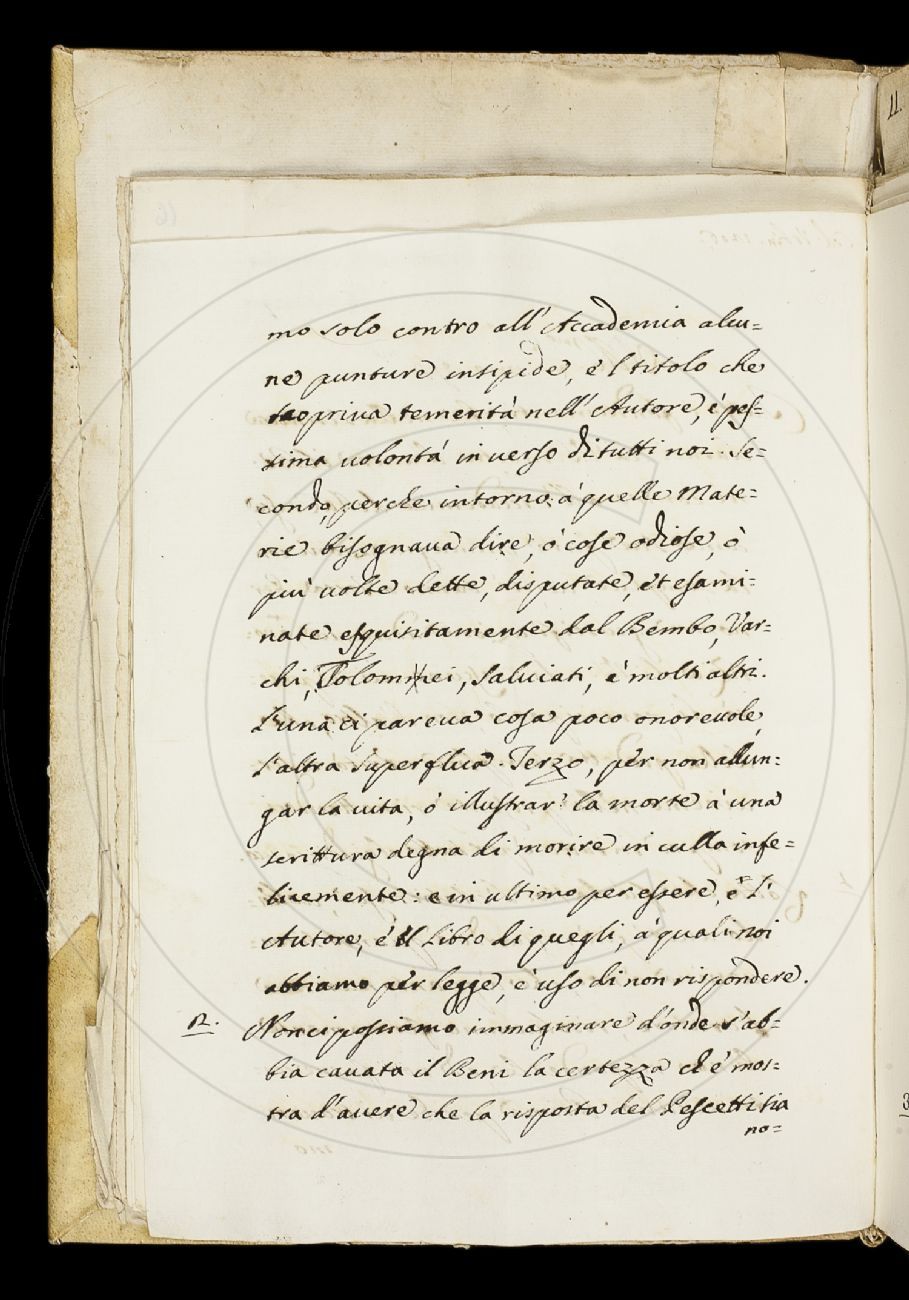 mo solo contro all' Accademia alcu=
ne punture insipide, e 'l titolo che
scopriva temerità nell' Autore, è pes=
sima volontà in verso di tutti noi. Se=
condo, perche intorno à quelle Mate=
rie bisognaua dire, ò cose odiose, ò
più uolte dette, disputate, et esami=
nate esquisitamente dal Bembo, Var=
chi, Tolommei, Saluiati, è molti altri.
L'una ci pareua cosa poco onoreuole,
l'altra superflua. Terzo, per non allun=
gar la uita, ò illustrar' la morte à una
scrittura degna di morire in culla infe=
licemente: e in ultimo per essere, è L'
Autore, è il Libro di quegli, à quali noi
abbiamo per legge, è uso di non rispondere.
2. Non ci possiamo immaginare d'onde s'ab=
bia cauata il Beni la certezza ch' è mos=
tra d'auere che la risposta del Pescetti sia
no=
11.
3